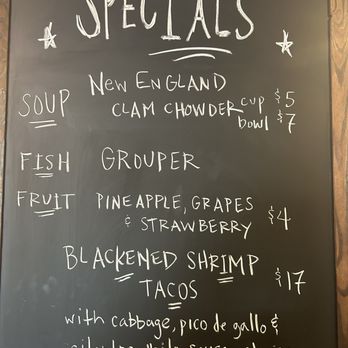 SPECIALS
SOUP NEW ENGLAND
CLAM CHOWDER CUP $5
bowl $7
FISH GROUPER
FRUIT PINEAPPLE, GRAPES
& STRAWBERRY $4
BLACKENED SHRIMP
TACOS $17
with cabbage, pico de gallo &